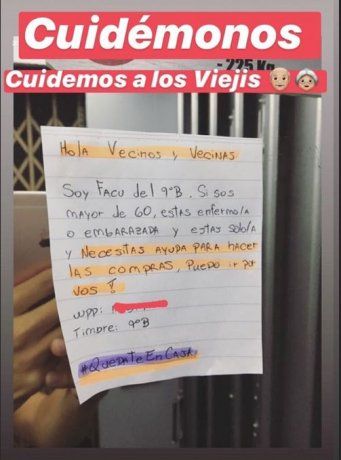 Cuidémonos
- 225 Kg
Cuidemos a los Viejis 👴🏼👵🏼
Hola Vecinos y Vecinas
Soy Facu del 9°B. Si sos
mayor de 60, estas enfermo/a
o embarazada y estas solo/a
y Necesitas ayuda para hacer
las compras, Puedo ir por
vos!
WPP:
Timbre: 9°B
#QuedateEnCasa